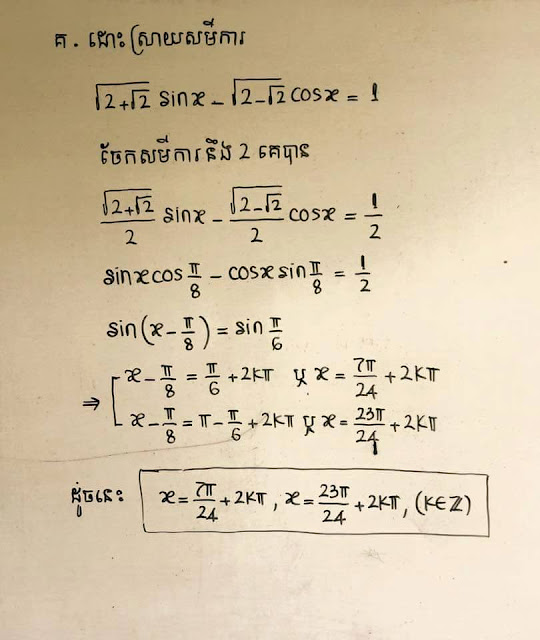 គ . ដោះស្រាយសមីការ
√(2+√2) sinx − √(2−√2) cosx = 1
ចែកសមីការនឹង 2 គេបាន
√(2+√2)/2 sinx − √(2−√2)/2 cosx = 1/2
sinxcos π/8 − cosxsin π/8 = 1/2
sin(x − π/8) = sin π/6
⇒ [ x − π/8 = π/6 + 2kπ ឬ x = 7π/24 + 2kπ
x − π/8 = π − π/6 + 2kπ ឬ x = 23π/24 + 2kπ
ដូចនេះ x = 7π/24 + 2kπ , x = 23π/24 + 2kπ , (k∈ℤ)